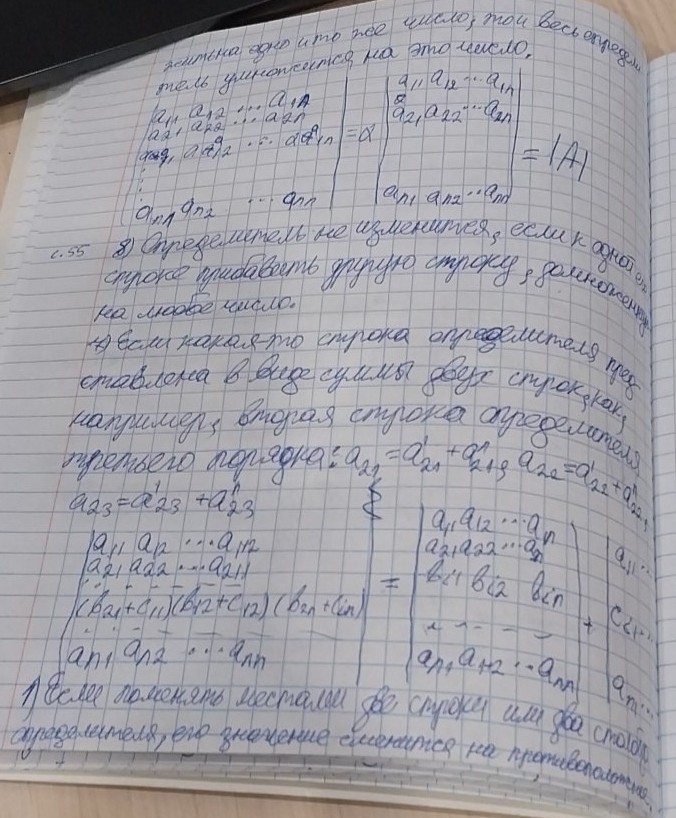 одно и то же число, то и весь определи
тель умножится на это число.
|a₁₁ a₁₂ ... a₁ₙ| |a₁₁ a₁₂ ... a₁ₙ|
|a₂₁ a₂₂ ... a₂ₙ| = α |a₂₁ a₂₂ ... a₂ₙ| = |A|
⋮
|aₙ₁ aₙ₂ ... aₙₙ| |aₙ₁ aₙ₂ ... aₙₙ|
с.55 8) Определитель не изменится, если к одной его
строке прибавить другую строку, домноженную
на любое число.
Если какая-то строка определителя пред
ставлена в виде суммы двух строк, как,
например, вторая строка определителя
третьего порядка: a₂₁ = a'₂₁ + a"₂₁, a₂₂ = a'₂₂ + a"₂₂,
a₂₃ = a'₂₃ + a"₂₃
|a₁₁ a₁₂ ... a₁ₙ₂| |a₁₁ a₁₂ ... a₁ₙ| |a₁₁ ...
|a₂₁ a₂₂ ... a₂₁₁| |a₂₁ a₂₂ ... a₂ₙ|
|(b₂₁ + c₁₁) (b₁₂ + c₁₂) (b₂ₙ + cᵢₙ)| = |bᵢ₁ bᵢ₂ bᵢₙ| + |cᵢ₁ ...
|aₙ₁ aₙ₂ ... aₙₙ| |aₙ₁ aₙ₂ ... aₙₙ| |aₙ₁ ...
1) Если поменять местами две строки или два столбца
определителя, его значение сменится на противоположное.